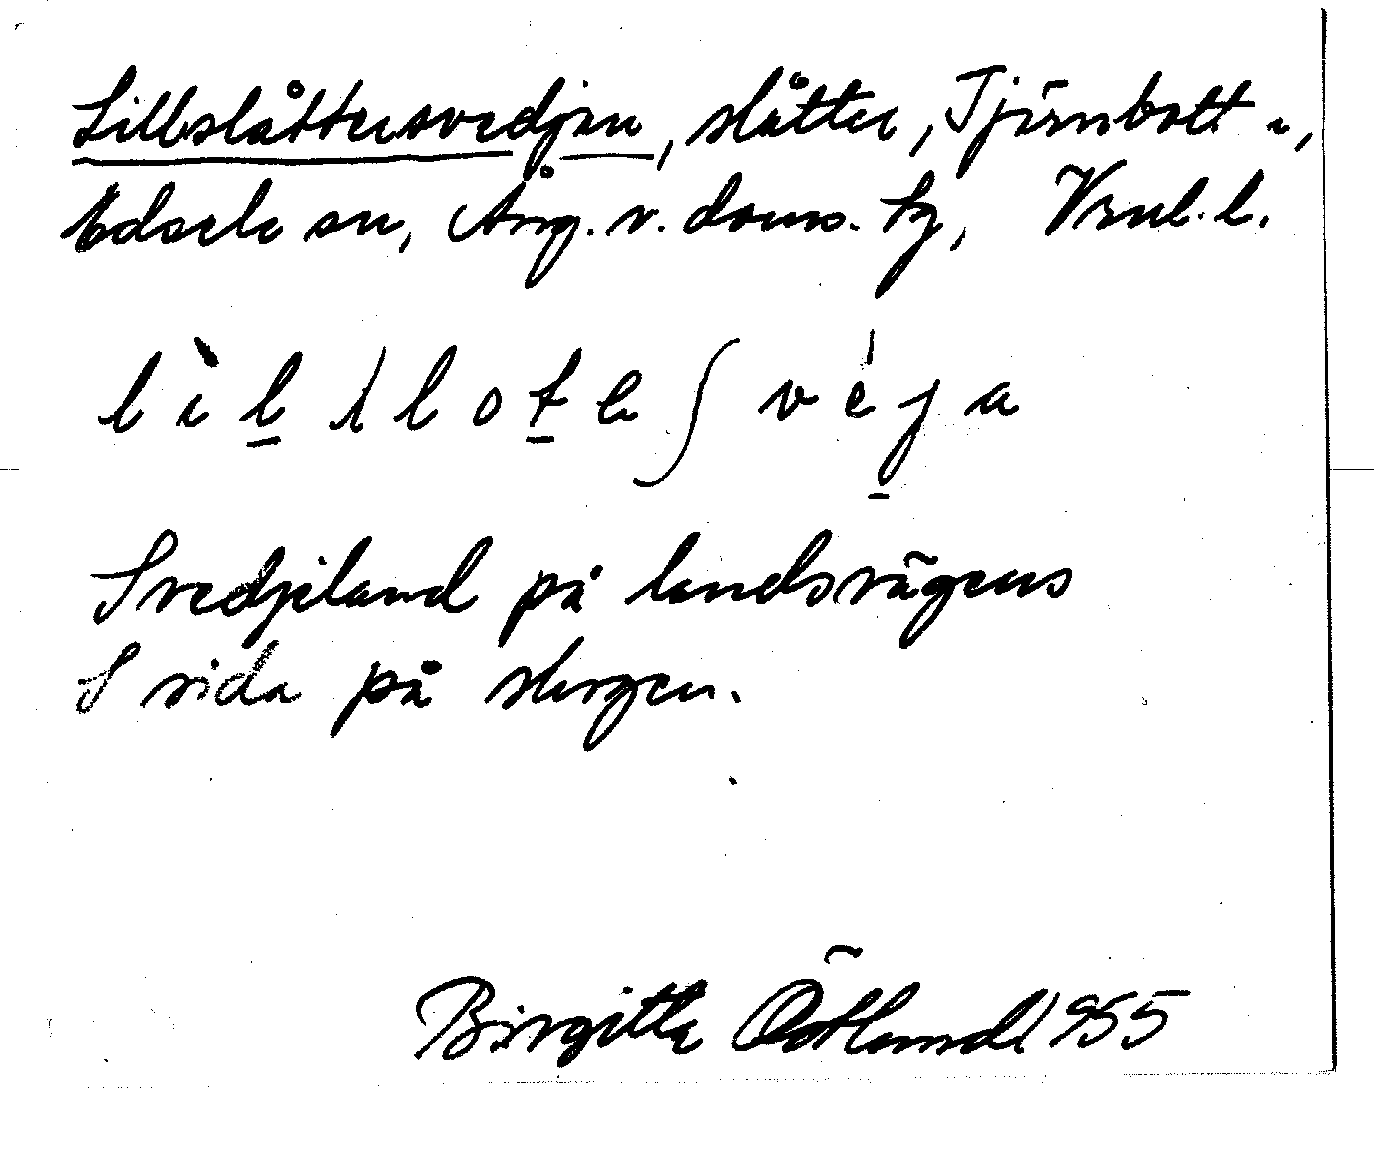 Lillslåttersvedjan, slåtter, Tjärnbott n,
Edsele sn, Ång. v. doms. tg, Vrnl. l.
Svedjeland på landsvägens
S sida på skogen.
Birgitta Östlund 1955